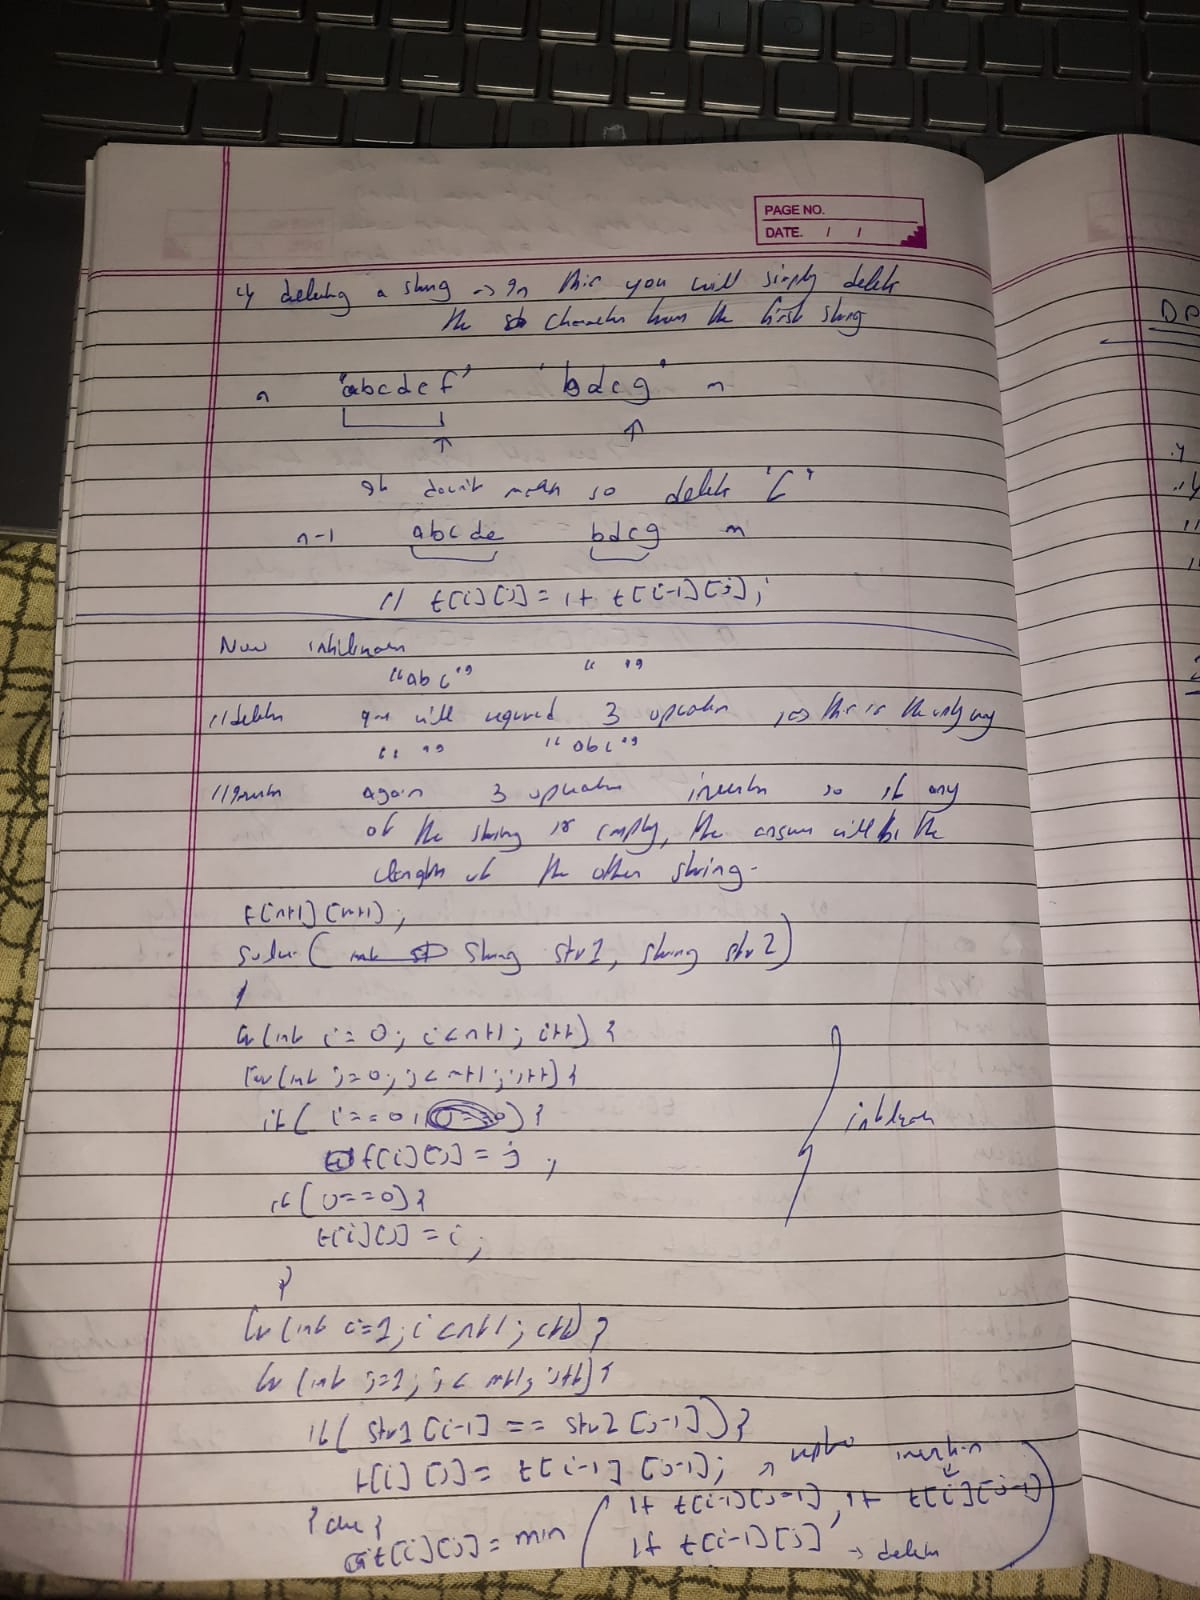 PAGE NO.
DATE. / /
deleting a string → In this you will simply delete
the character from the first string
n "abcdef" "bdcg" m
It doesn't match so delete
n-1 abcde bdcg m
// t[i][j] = 1+ t[i-1][j];
Now
"abc" " "
// deletion you will required 3 operation ⇒ this is the only way
" " "abc"
again 3 operation insertion so if any
of the string is empty, the answer will be the
length of the other string.
t[n+1][m+1];
solve( string str1, string str2)
{
for(int i=0; i<n+1; i++) {
for(int j=0; j<m+1; j++) {
if( i==0 ) {
t[i][j] = j ;
if(j==0) {
t[i][j] = i;
}
for(int i=1; i<n+1; i++) {
for (int j=1; j< m+1; j++) {
if( str1[i-1] == str2[j-1]) {
t[i][j] = t[i-1][j-1];
insertion
1+ t[i-1][j-1], 1+ t[i][j-1]
} else {
t[i][j] = min
1+ t[i-1][j] → deletion
DP